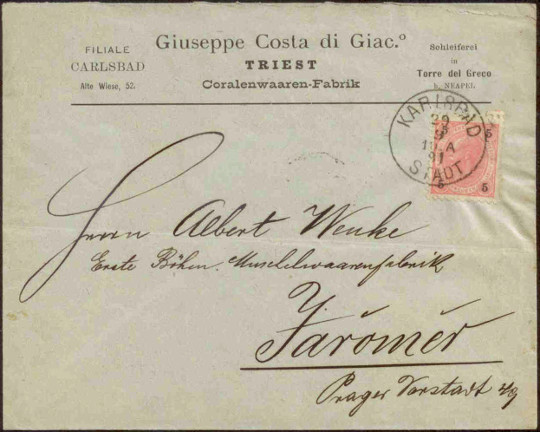 FILIALE
CARLSBAD
Alte Wiese, 52.
Giuseppe Costa di Giac.º
TRIEST
Coralenwaaren-Fabrik
Schleiferei
in
Torre del Greco
b. NEAPEL.
KARLSBAD
29
9
91
STADT
5
5
5
Herrn Albert Wenke
Erste Böhm. Muschelwaarenfabrik
Jaroměř
Prager Vorstadt